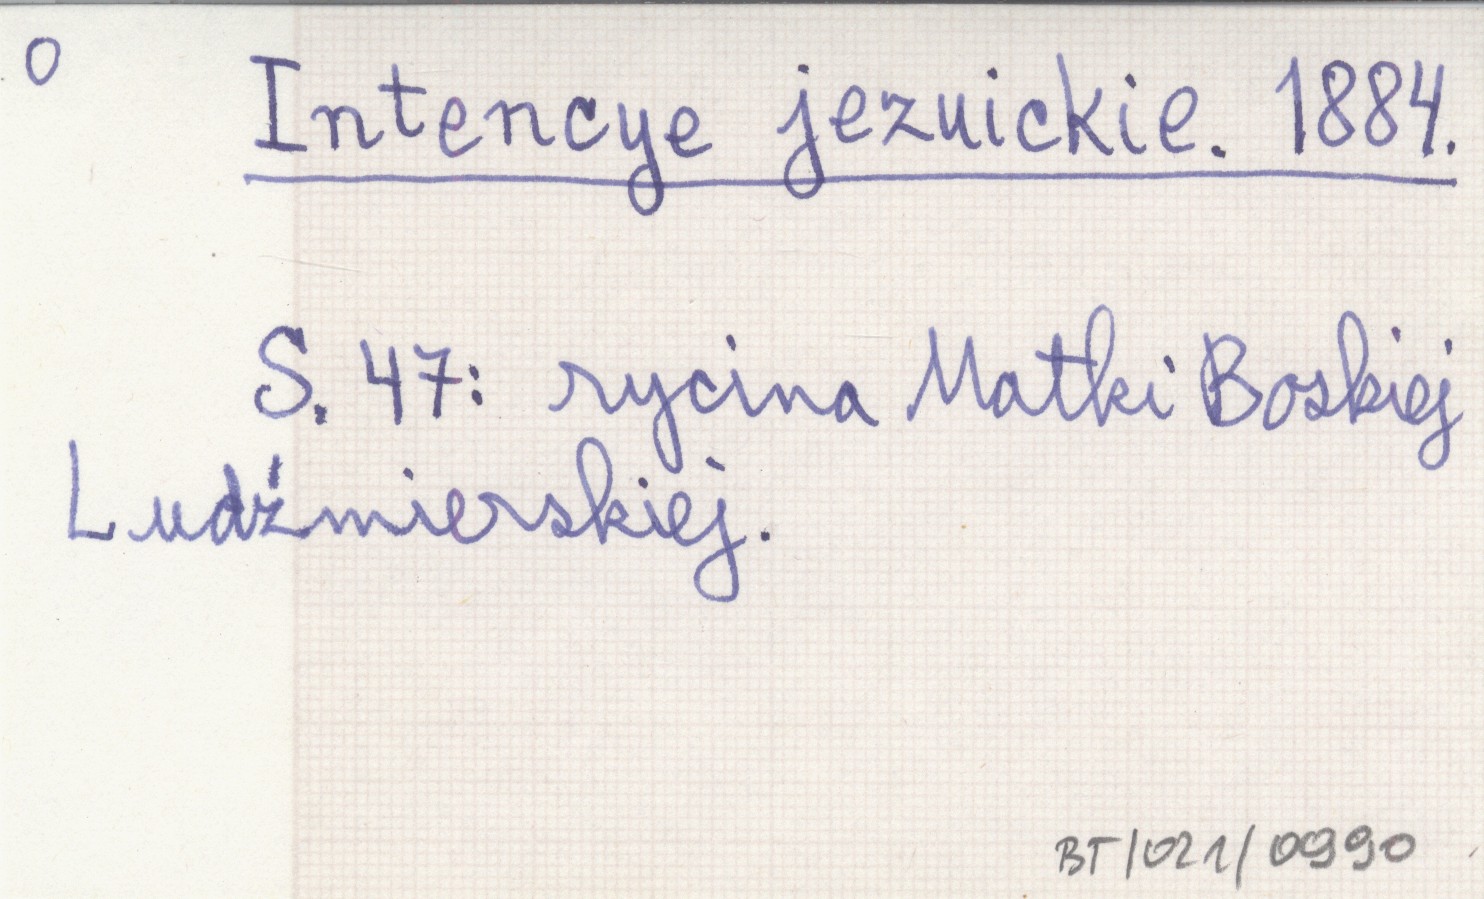 O
Intencye jezuickie. 1884.
S. 47: rycina Matki Boskiej
Ludźmierskiej.
BT/021/0990